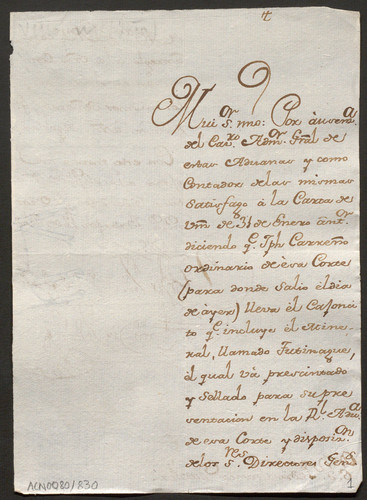 †
Mui S.or mio: Por àusen.a
del Cav.ro Adm.or Gral de
estas Aduanas y como
Contador de las mismas
satisfago â la Carta de
Vm. de 31 de Enero ant.or
diciendo q.e Jph Carreño
ordinario de èsa Corte
(para donde saliò èl dia
de àyer) lleva èl Caxonci-
to q.e incluye èl Mine-
ral, llamado
èl qual và precintado
y Sellado para su pre
sentacion en la R.l Adu.a
de esa Corte y disposi.on
de los S.res Directores Gen.s
ACN0080/830